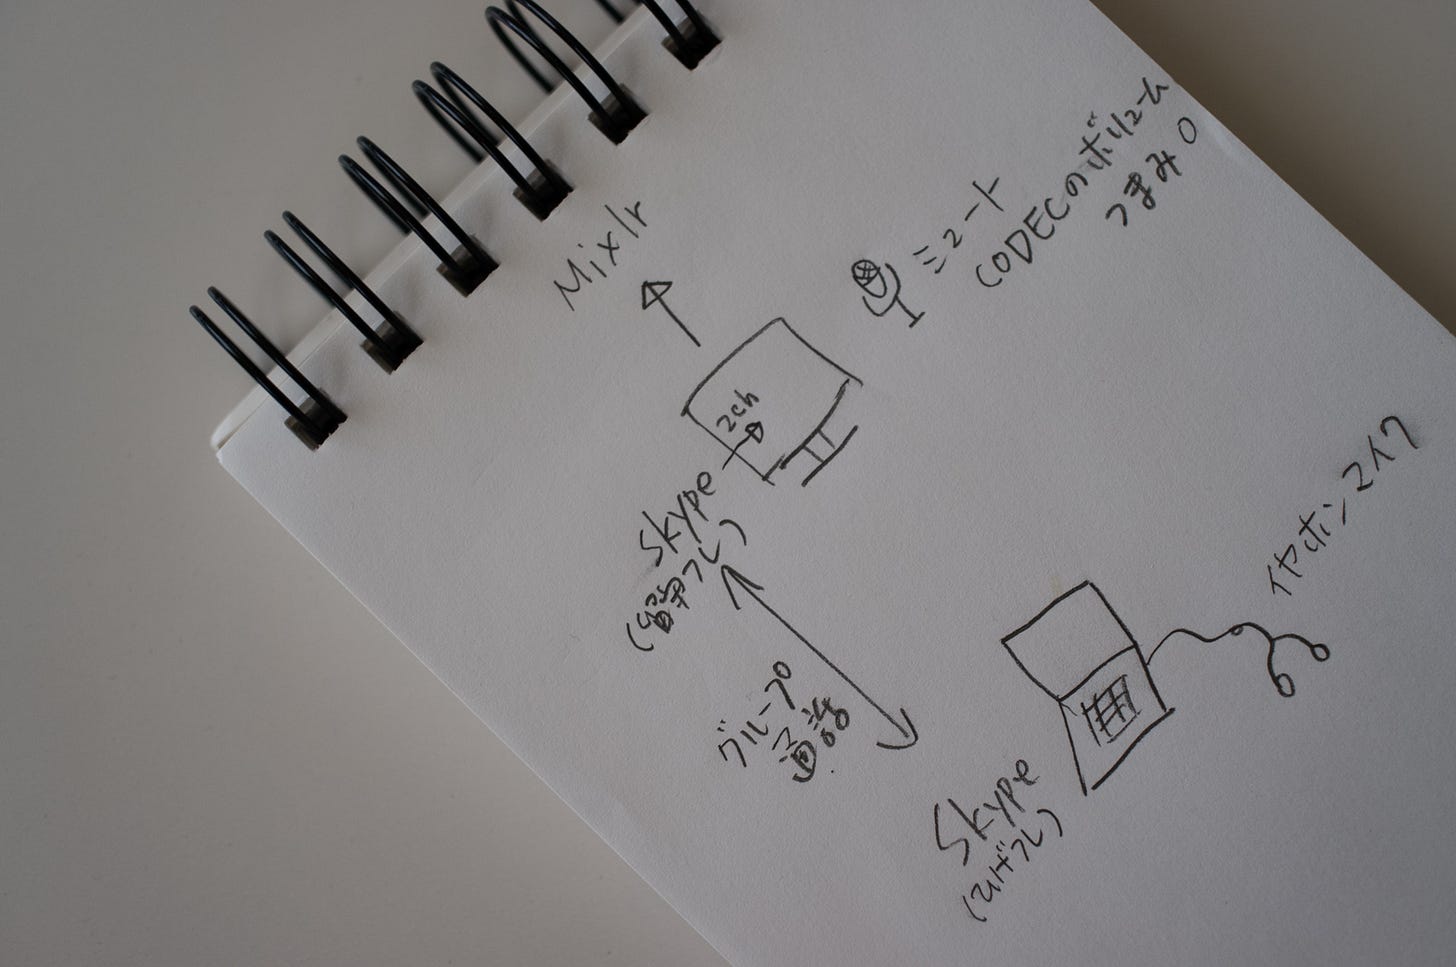 Mixlr
ミュート
CODECのボリューム
つまみ0
2ch
Skype
グループ
通話
イヤホンマイク
Skype
(ひげフレ)